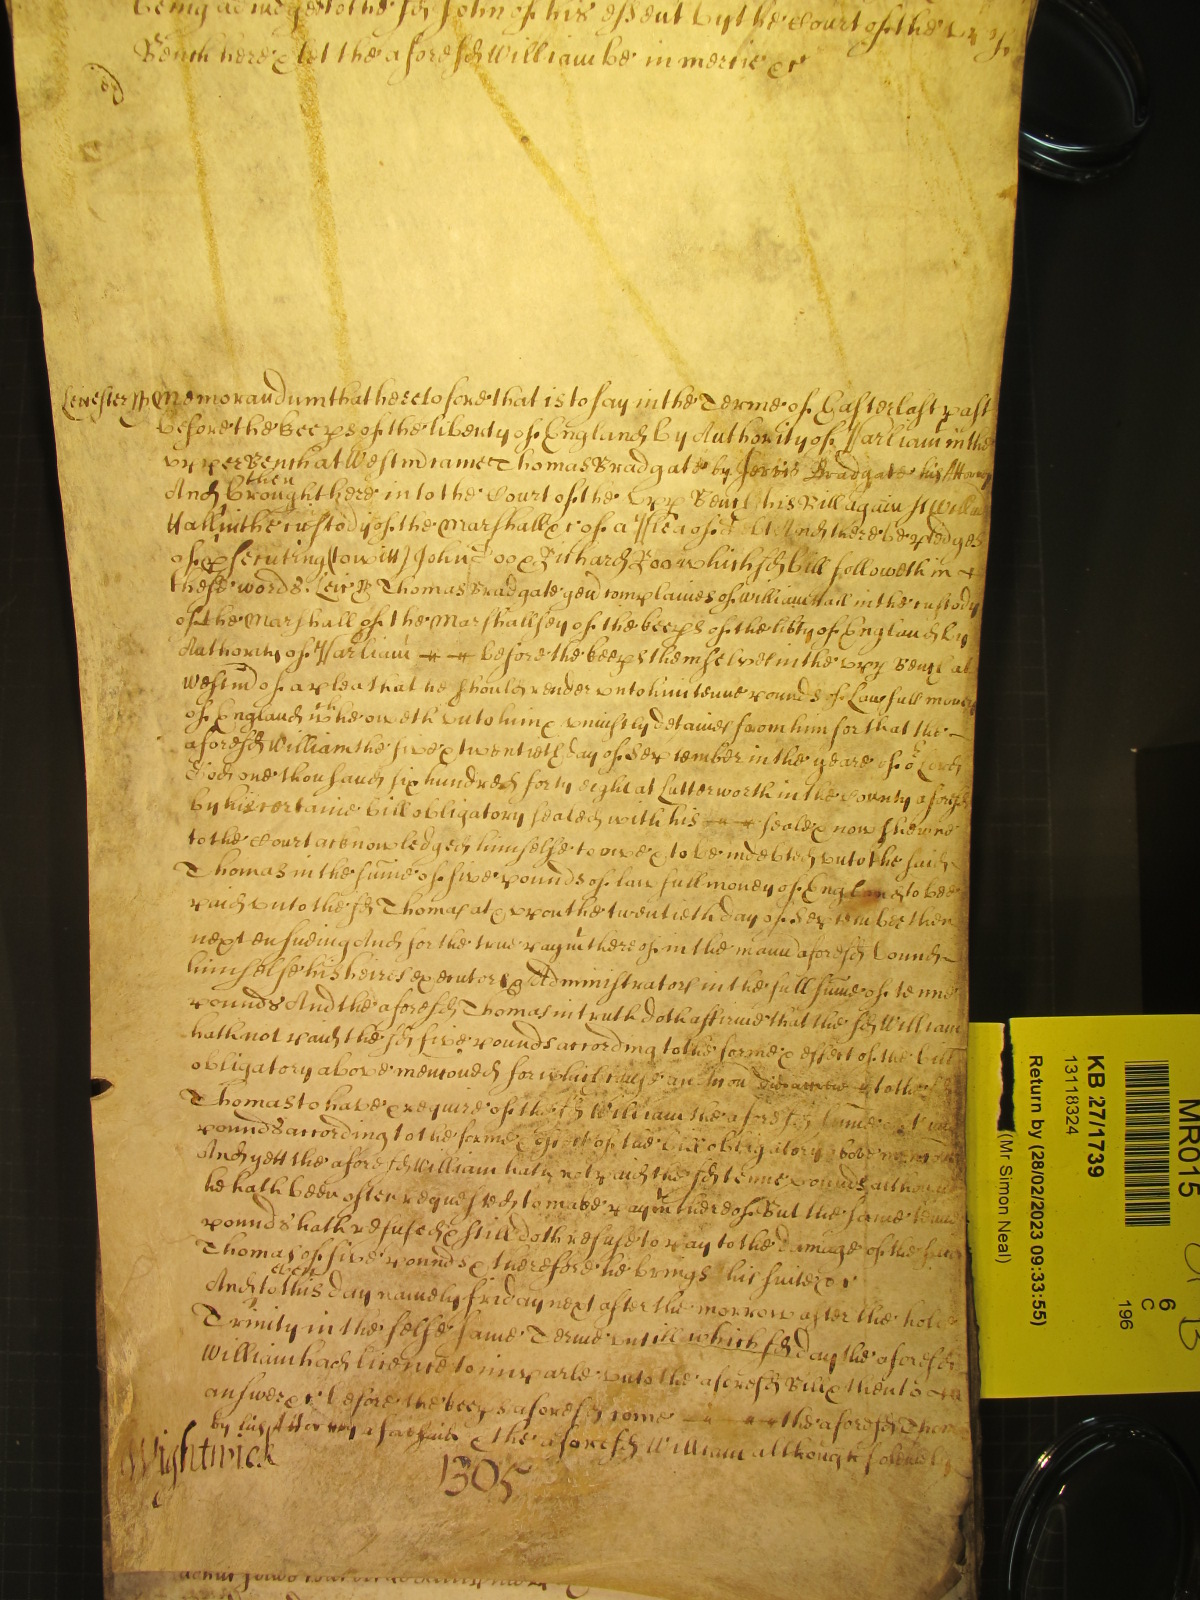 being adiudged to the sd John of his assent by the Court of the
Bench here & let the aforesd William be in mercie &c
Leicester ss Memorandum that heretofore that is to say in the Terme of Easter last past
before the keeps of the liberty of England by Authority of Parliamt in the
upper Bench at Westm came Thomas Bradgate by Jervis Bradgate his Attorney
And brought here into the Court of the upp Bench then his Bill against William
Hall in the custody of the Marshall &c of a Plea of Debt And there be pledges
of psecuting (to witt) John Doo & Richard Roo which sd bill followeth in
these words. Leic ss Thomas Bradgate gent complaines of William Hall in the custody
of the Marshall of the Marshallsey of the keeps of the libty of England by
Authority of Parliamt before the keeps themselves in the upp Bench at
Westm of a plea that he should render unto him tenne pounds of Lawfull money
of England wch he oweth unto him & uniustly detaines from him for that the
aforesd William the six & twentieth day of September in the yeare of or Lord
God one thousand six hundred forty eight at Lutterworth in the County aforesd
by his certaine bill obligatory sealed with his seale & now shewne
to the Court acknowledged himselfe to owe & to be indebted unto the said
Thomas in the sume of five pounds of lawfull money of England to bee
paid unto the sd Thomas at & upon the twentieth day of September then
next ensueing And for the true paymt thereof in the mannr aforesd bound
himselfe his heires executors & Administrators in the full sume of tenne
pounds And the aforesd Thomas in truth doth affirme that the sd William
hath not paid the sd five pounds according to the forme & effect of the bill
obligatory above mentioned for which cause an accon to the sd
Thomas to have & require of the sd William the aforesd sume of tenne
pounds according to the forme & effect of the bill obligatory above mentioned
And yett the aforesd William hath not paid the sd tenne pounds although
he hath been often requested to make paymt thereof But the same tenne
pounds hath refused & still doth refuse to pay to the damage of the said
Thomas of five pounds & therefore he brings his suite &c
And even to this day namely friday next after the morrow after the holy
Trinity in the selfe same Terme untill which sd day the aforesd
William had licence to imparle unto the aforesd Bill & then to
answer &c before the keeps aforesd come the aforesd Thomas
by his Attorney aforesaid & the aforesd William although solemnly
Wightwick
1305
MR015
KB 27/1739
13118324
Return by (28/02/2023 09:33:55)
(Mr Simon Neal)
6
C
196